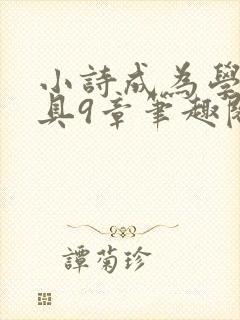 小詩成為學
具9章筆趣閱
譚菊珍